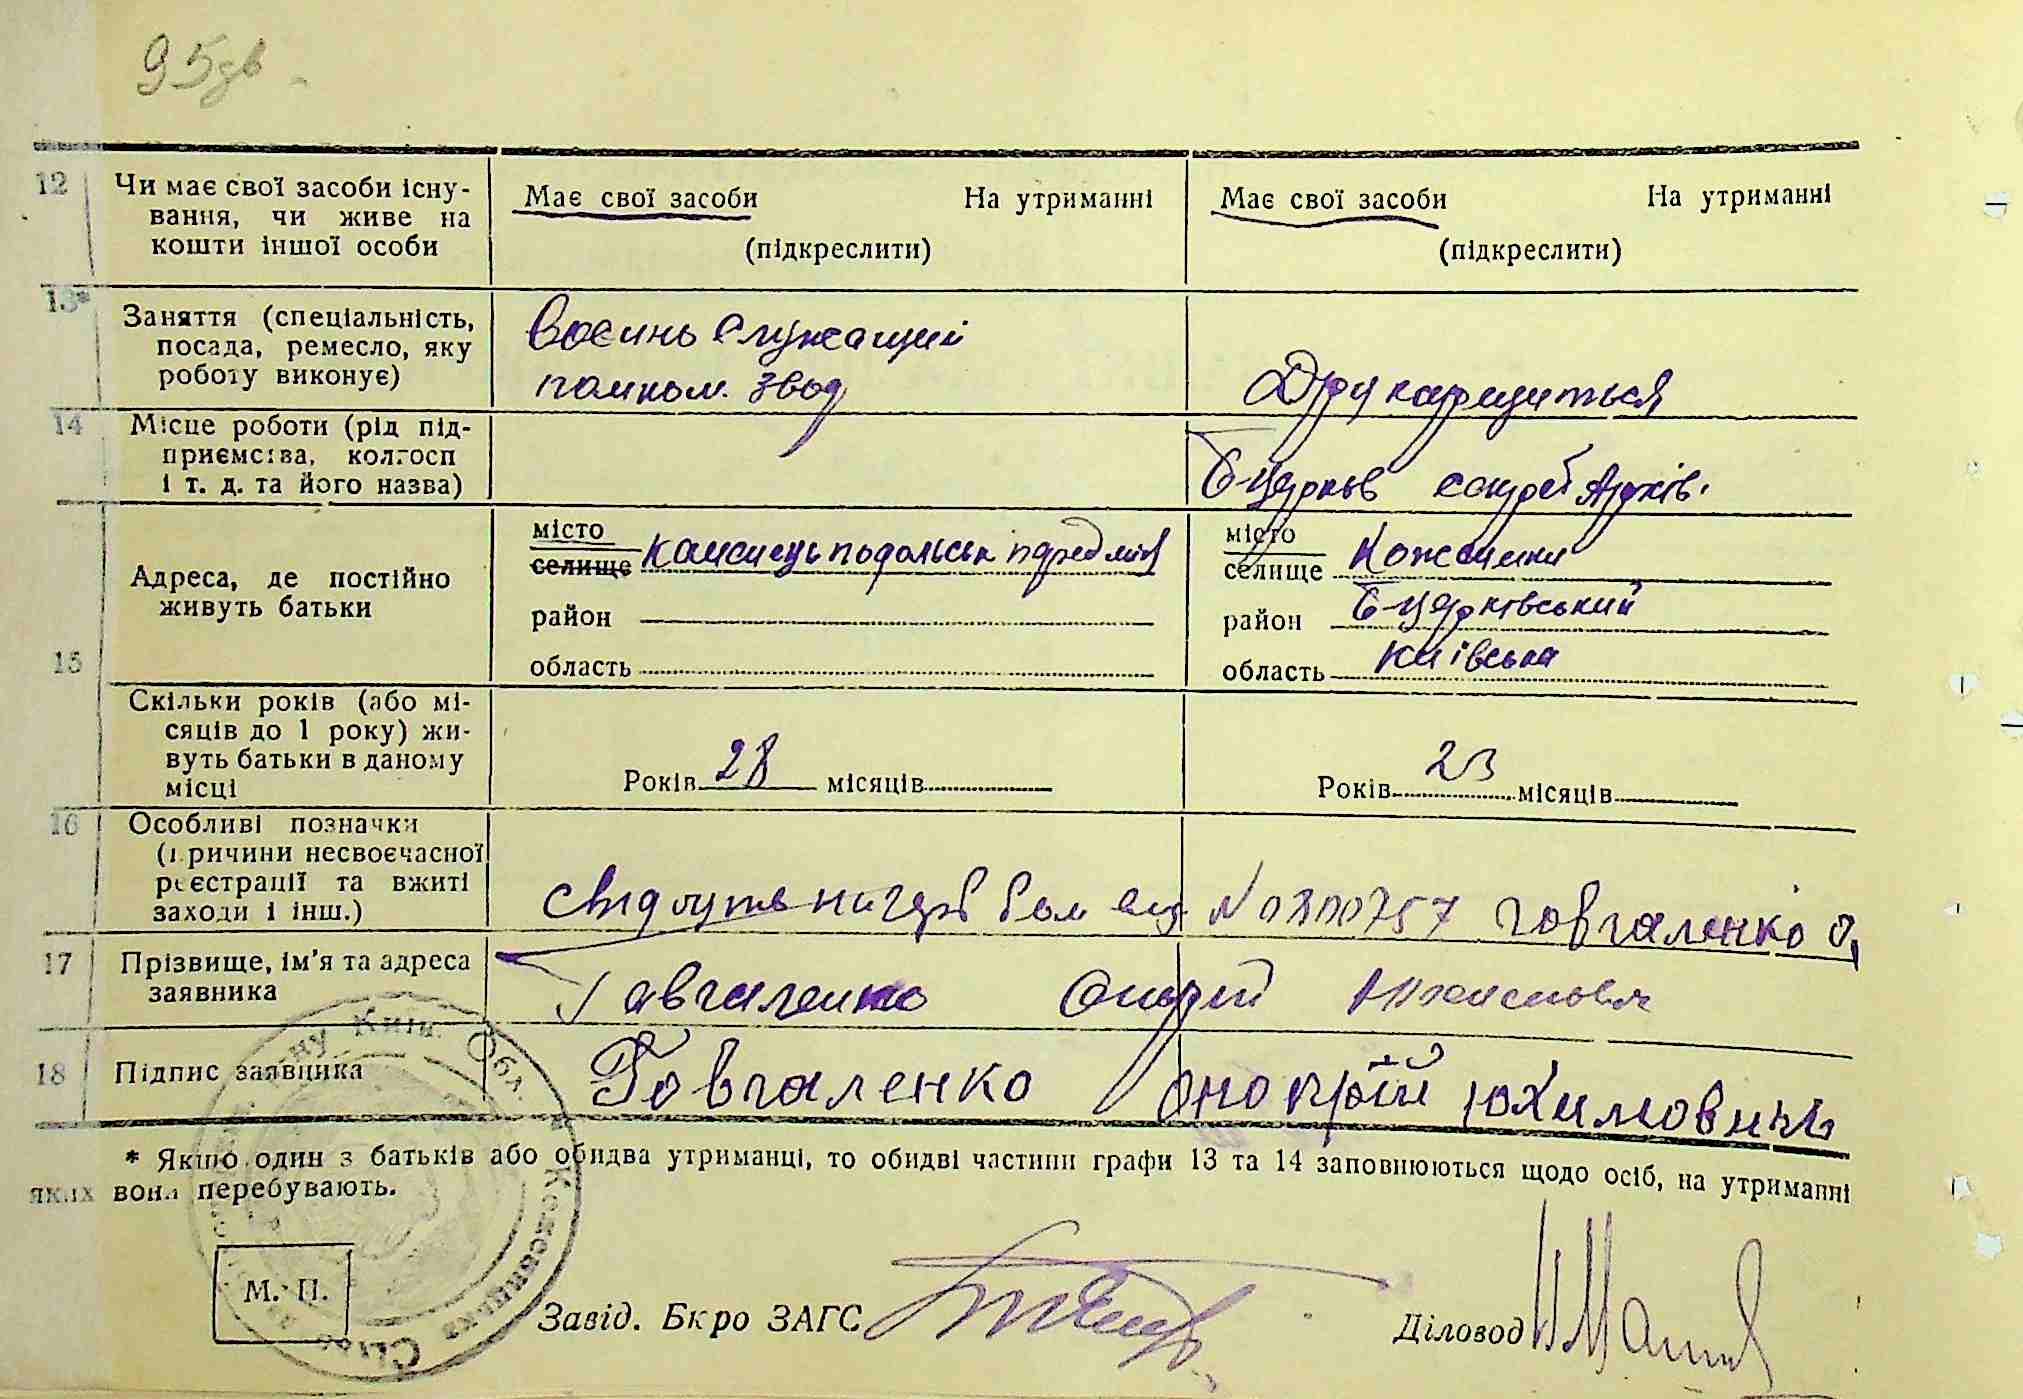 95зв
12 Чи має свої засоби існу-
вання, чи живе на
кошти іншої особи
Має свої засоби На утриманні
(підкреслити)
Має свої засоби На утриманні
(підкреслити)
13* Заняття (спеціальність,
посада, ремесло, яку
роботу виконує)
Воєинь служащий
помком. звод
Друкариться
14 Місце роботи (рід під-
приємства, колгосп
і т. д. та його назва)
Б-Церкьв Архів.
15 Адреса, де постійно
живуть батьки
місто
селище Камєнець подольськ
район
область
місто
селище Кожаники
район Б-Церківський
область Київська
Скільки років (або мі-
сяців до 1 року) жи-
вуть батьки в даному
місці
Років 28 місяців
Років 23 місяців
16 Особливі позначки
(причини несвоєчасної
реєстрації та вжиті
заходи і інш.)
N Говгаленко О,
17 Прізвище, ім'я та адреса
заявника
Гавгаленко
18 Підпис заявника
Говгаленко Онопрій Юхимович
* Якщо один з батьків або обидва утриманці, то обидві частини графи 13 та 14 заповнюються щодо осіб, на утриманні
яких вони перебувають.
М. П.
Завід. Бюро ЗАГС
Діловод